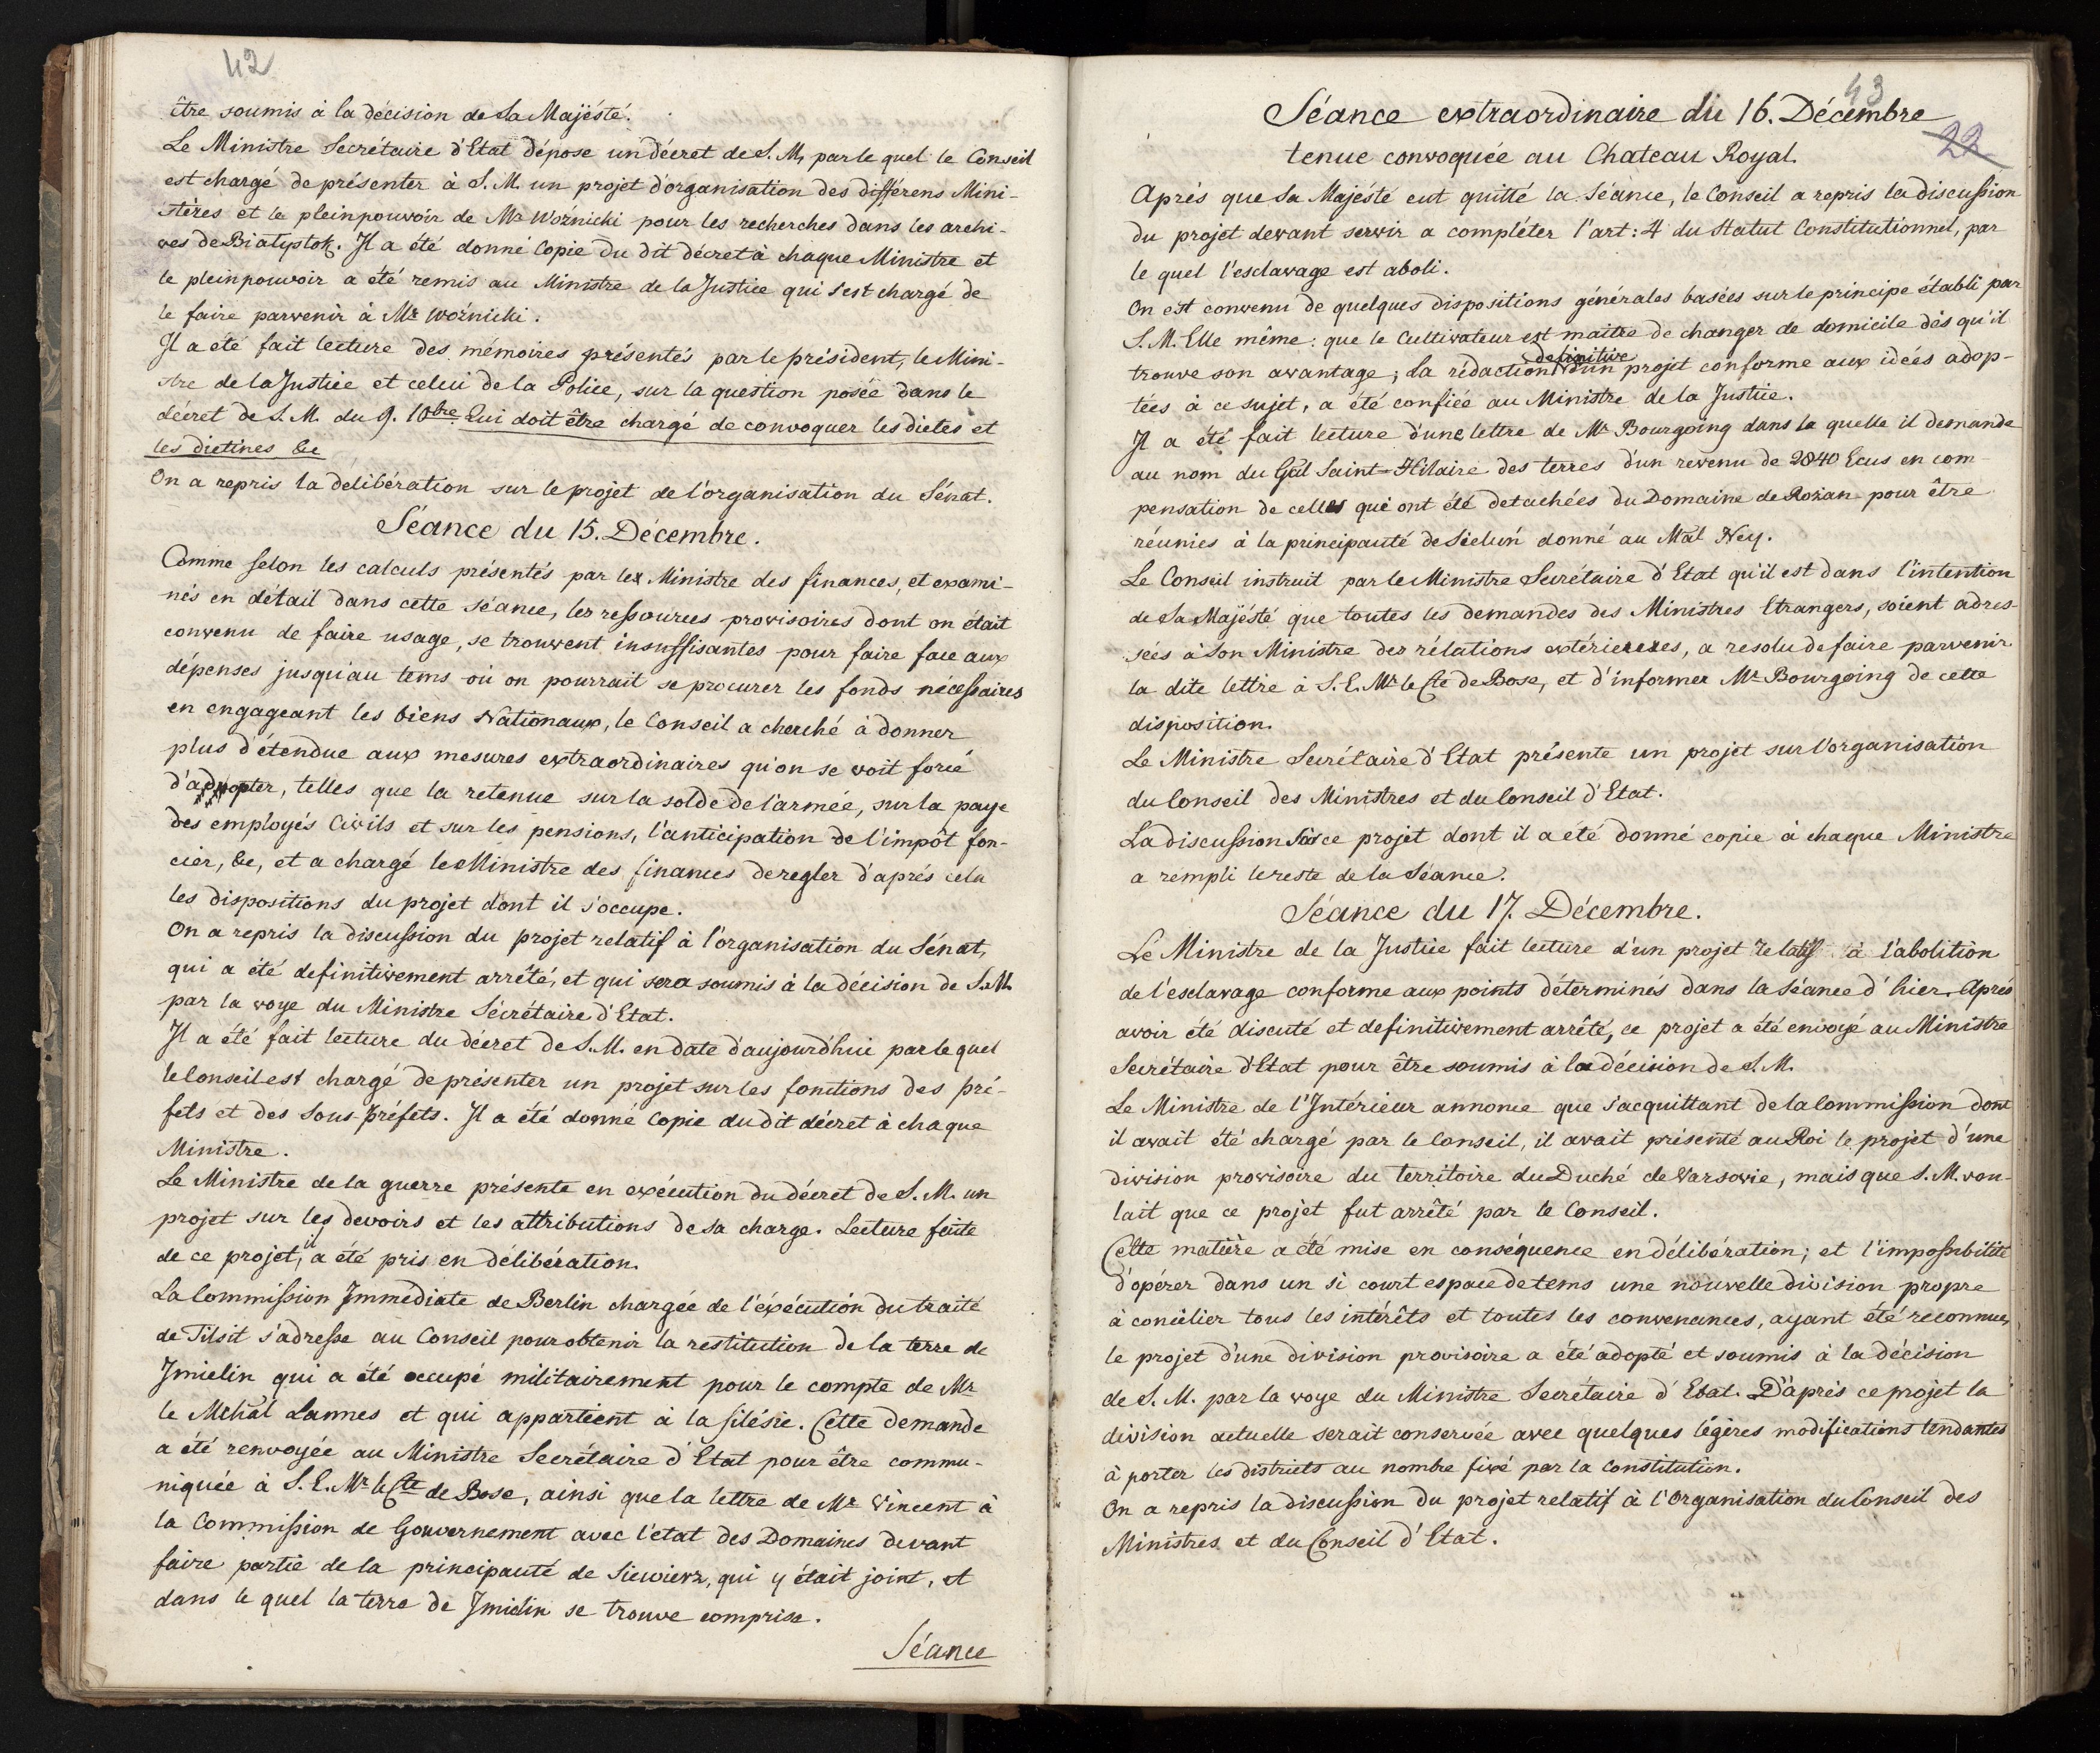 42
être soumis à la décision de Sa Majésté.
Le Ministre Secrétaire d'Etat dépose un décret de S. M. par le quel le Conseil
est chargé de présenter à S. M. un projet d'organisation des différens Mini-
stères et le pleinpouvoir de Mr Woźnicki pour les recherches dans les archi-
ves de Białystok. Il a été donné Copie du dit décret à chaque Ministre et
le pleinpouvoir a été remis au Ministre de la Justice qui s'est chargé de
le faire parwenir à Mr Woźnicki.
Il a été fait lecture des mémoires présentés par le président, le Mini-
stre de la Justice et celui de la Police, sur la question posée dans le
décret de S. M. du 9. 10bre Qui doit être chargé de convoquer les dietes et
les dietines &c
On a repris la délibération sur le projet de l'organisation du Sénat.
Séance du 15. Décembre.
Comme selon les calculs présentés par le Ministre des finances, et exami-
nés en détail dans cette séance, les ressources provisoires dont on était
convenu de faire usage, se trouvent insuffisantes pour faire face aux
dépenses jusqu'au tems où on pourrait se procurer les fonds nécessaires
en engageant les biens Nationaux, le Conseil a cherché à donner
plus d'étendue aux mesures extraordinaires qu'on se voit forcé
d'adopter, telles que la retenue sur la solde de l'armée, sur la paye
des employés Civils et sur les pensions, l'anticipation de l'impôt fon-
cier, &c, et a chargé le Ministre des finances de regler d'aprés cela
les dispositions du projet dont il s'occupe.
On a repris la discussion du projet relatif à l'organisation du Sénat,
qui a été definitivement arrêté, et qui sera soumis à la décision de S. M.
par la voye du Ministre Sécrétaire d'Etat.
Il a été fait lecture du décret de S. M. en date d'aujourd'hui par le quel
le Conseil est chargé de présenter un projet sur les fonctions des pré-
fets et des Sous-préfets. Il a été donné Copie du dit décret à chaque
Ministre.
Le Ministre de la guerre présente en exécution du décret de S. M. un
projet sur les devoirs et les attributions de sa charge. Lecture faite
de ce projet, il a été pris en délibération.
La Commission Immédiate de Berlin chargée de l'éxécution du traité
de Tilsit s'adresse au Conseil pour obtenir la restitution de la terre de
Imielin qui a été occupé militairement pour le compte de Mr
le Mchal Lannes et qui appartient à la silésie. Cette demande
a été renvoyée au Ministre Secrétaire d'Etat pour être commu-
niquée à S. E. Mr le Cte de Bose, ainsi que la lettre de Mr Vincent à
la Commission de Gouvernement avec l'etat des Domaines devant
faire partie de la principauté de Siewierz, qui y était joint, et
dans le quel la terre de Imielin se trouve comprise.
Séance
43
22
Séance extraordinaire du 16. Décembre
tenue convoquée au Chateau Royal.
Aprés que Sa Majésté eut quitté la Séance, le Conseil a repris la discussion
du projet devant servir a compléter l'art: 4 du Statut Constitutionnel, par
le quel l'esclavage est aboli.
On est convenu de quelques dispositions générales basées sur le principe établi par
S. M. Elle même: que le Cultivateur est maitre de changer de domicile dès qu'il
trouve son avantage; la rédaction definitive d'un projet conforme aux idées adop-
tées à ce sujet, a été confiée au Ministre de la Justice.
Il a été fait lecture d'une lettre de Mr Bourgoing dans la quelle il demande
au nom du Gal Saint-Hilaire des terres d'un revenu de 2840 Ecus en com-
pensation de celles qui ont été detachées du Domaine de Rożan pour être
réunies à la principauté de Sielun donné au Mal Ney.
Le Conseil instruit par le Ministre Secrétaire d'Etat qu'il est dans l'intention
de Sa Majésté que toutes les demandes des Ministres Etrangers, soient adres-
sées à Son Ministre des rélations extérieures, a resolu de faire parvenir
la dite lettre à S. E. Mr le Cte de Bose, et d'informer Mr Bourgoing de cette
disposition.
Le Ministre Secrétaire d'Etat présente un projet sur l'organisation
du Conseil des Ministres et du Conseil d'Etat.
La discussion sur ce projet dont il a été donné copie à chaque Ministre
a rempli le reste de la Séance.
Séance du 17. Décembre.
Le Ministre de la Justice fait lecture d'un projet relatif à l'abolition
de l'esclavage conforme aux points déterminés dans la Séance d'hier. Aprés
avoir été discuté et definitivement arrêté, ce projet a été envoyé au Ministre
Secrétaire d'Etat pour être soumis à la décision de S. M.
Le Ministre de l'Intérieur annonce que s'acquittant de la Commission dont
il avait été chargé par le Conseil, il avait présenté au Roi le projet d'une
division provisoire du territoire du Duché de Varsovie, mais que S. M. vou-
lait que ce projet fut arrêté par le Conseil.
Cette matière a été mise en conséquence en délibération; et l'impossibilité
d'opérer dans un si court espace de tems une nouvelle division propre
à concilier tous les intérêts et toutes les convenances, ayant été reconnue,
le projet d'une division provisoire a été adopté et soumis à la décision
de S. M. par la voye du Ministre Secrétaire d'Etat. D'aprés ce projet la
division actuelle serait conservée avec quelques légères modifications tendantes
à porter les districts au nombre fixé par la Constitution.
On a repris la discussion du projet relatif à l'Organisation du Conseil des
Ministres et du Conseil d'Etat.